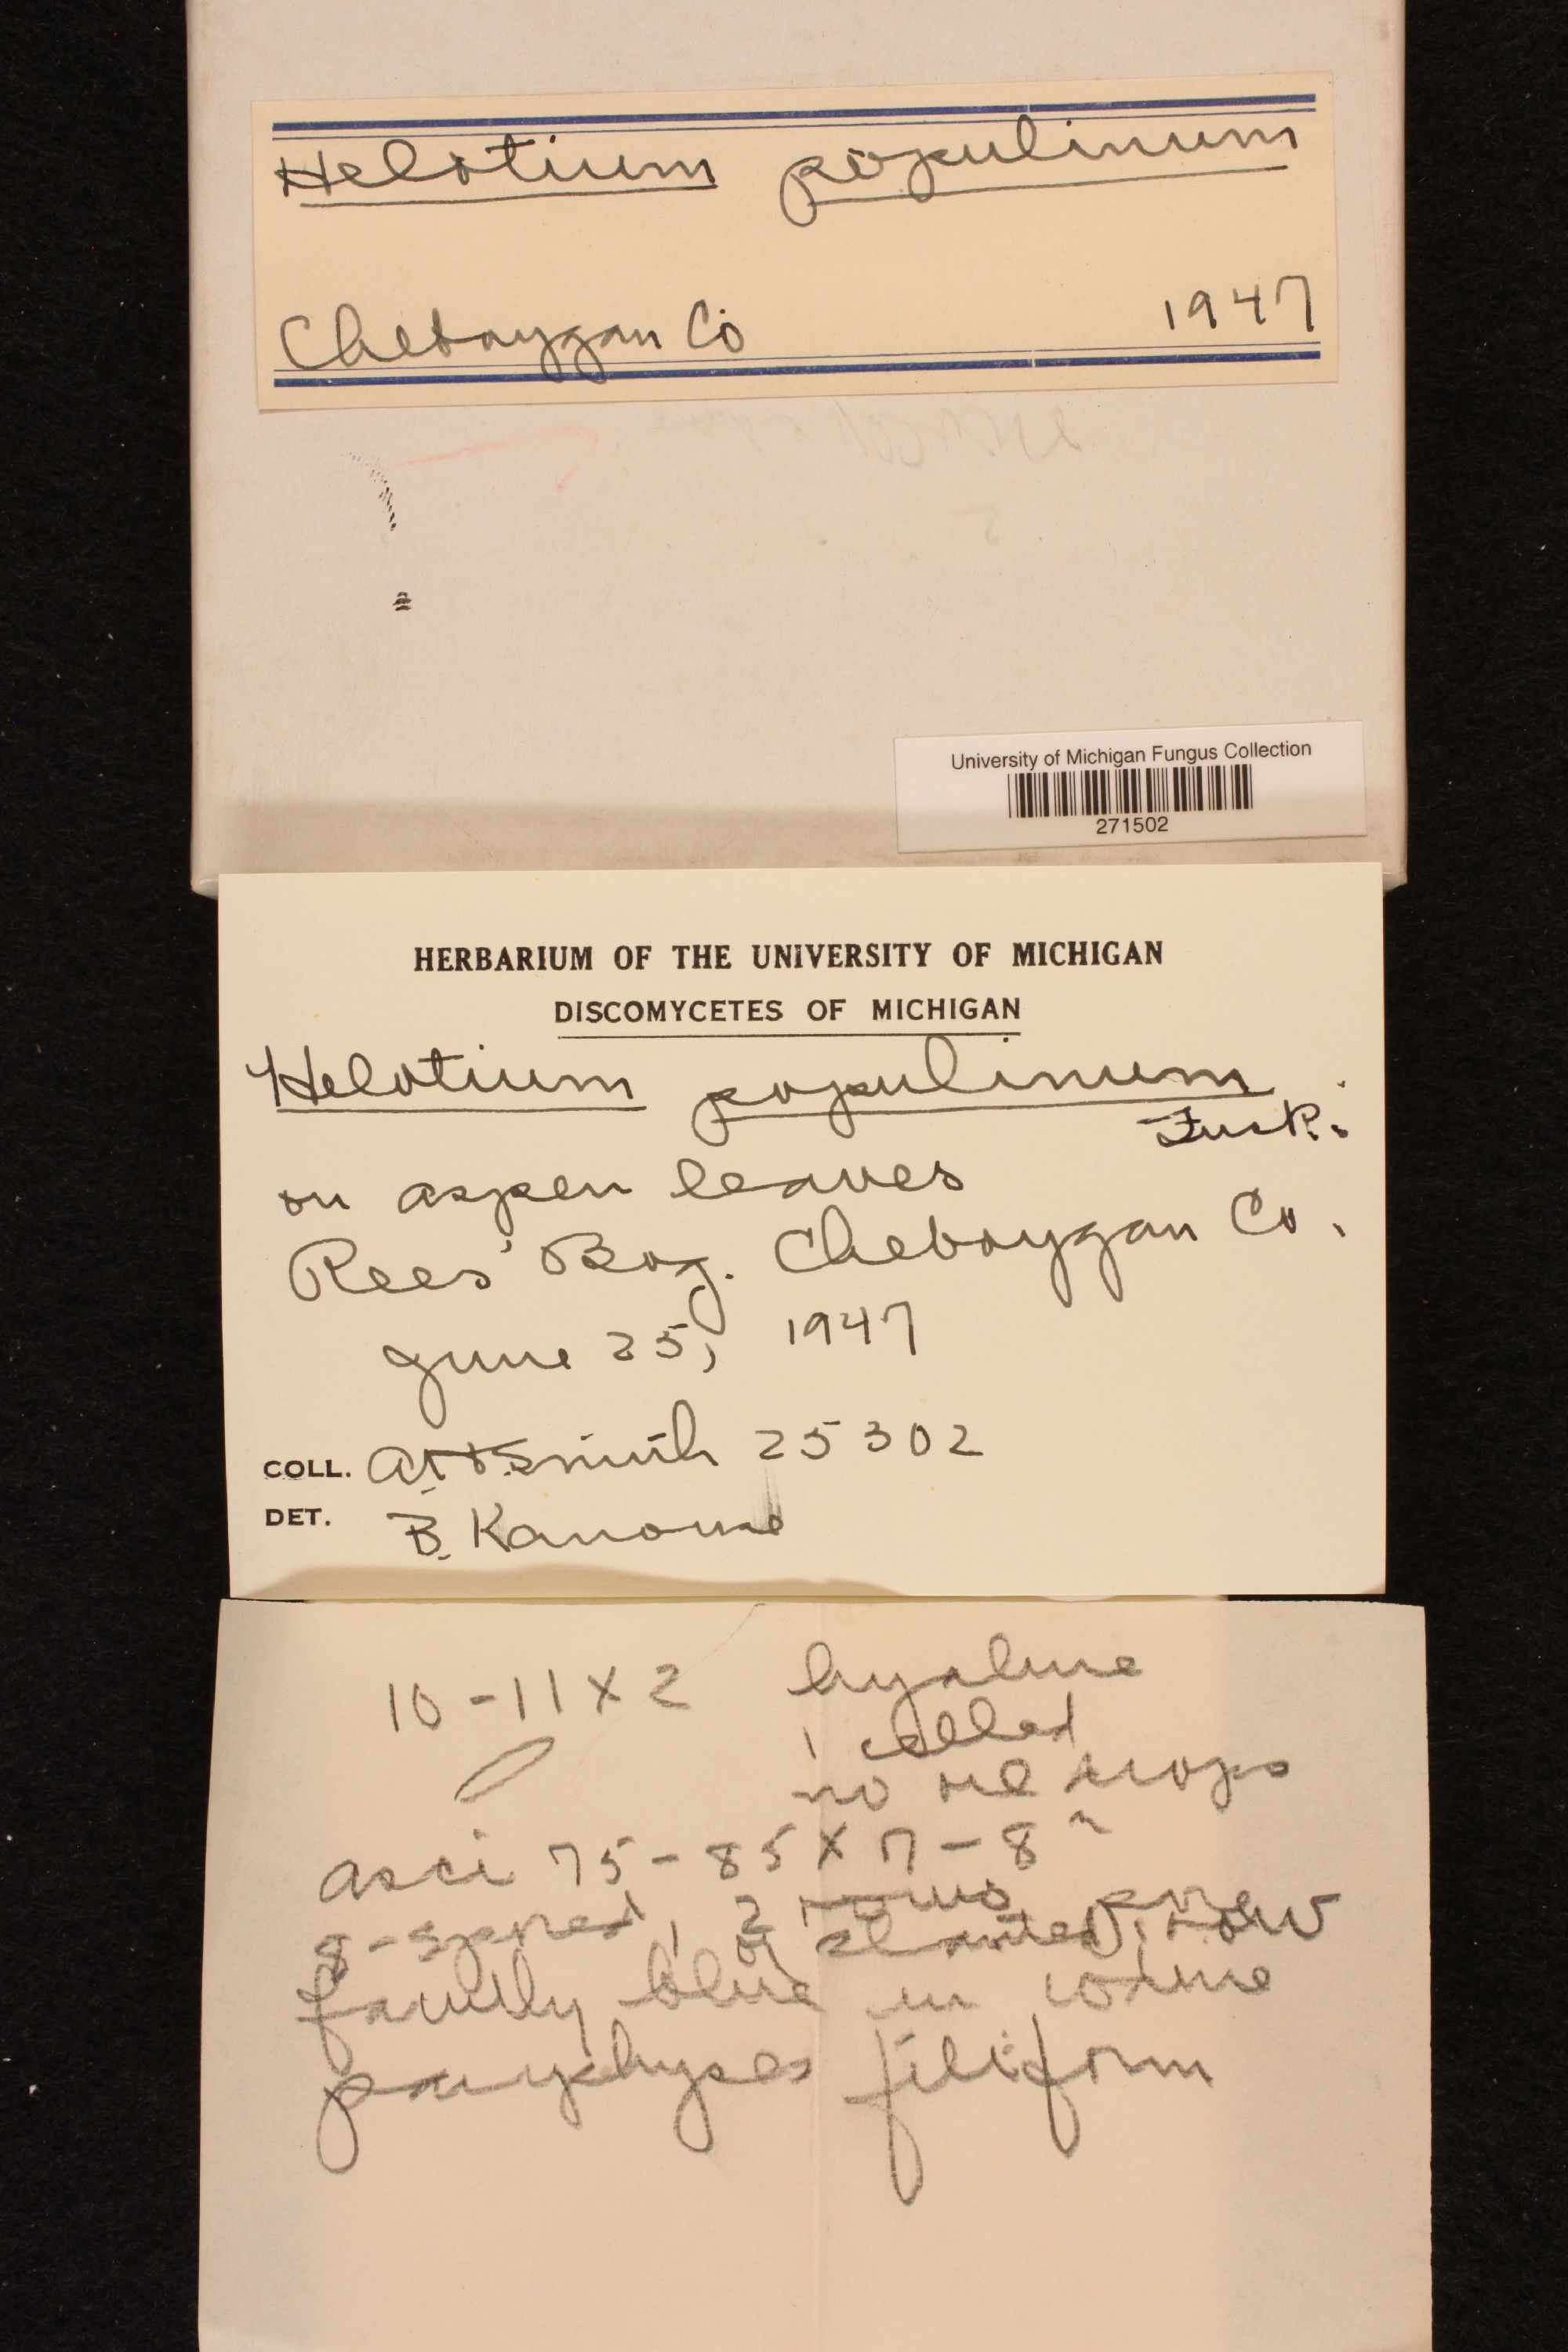 Helotium populinum
Cheboygan Co 1947
University of Michigan Fungus Collection
271502
HERBARIUM OF THE UNIVERSITY OF MICHIGAN
DISCOMYCETES OF MICHIGAN
Helotium populinum
Fuck.
on aspen leaves
Rees' Bog. Cheboygan Co.
June 25, 1947
COLL. AHSmith 25302
DET. B. Kanouse
10-11 X 2 hyaline
1 celled
no oil drops
asci 75-85 X 7-8
8-spored, 2 rows
or slanted, one row
faintly blue in iodine
paraphyses filiform